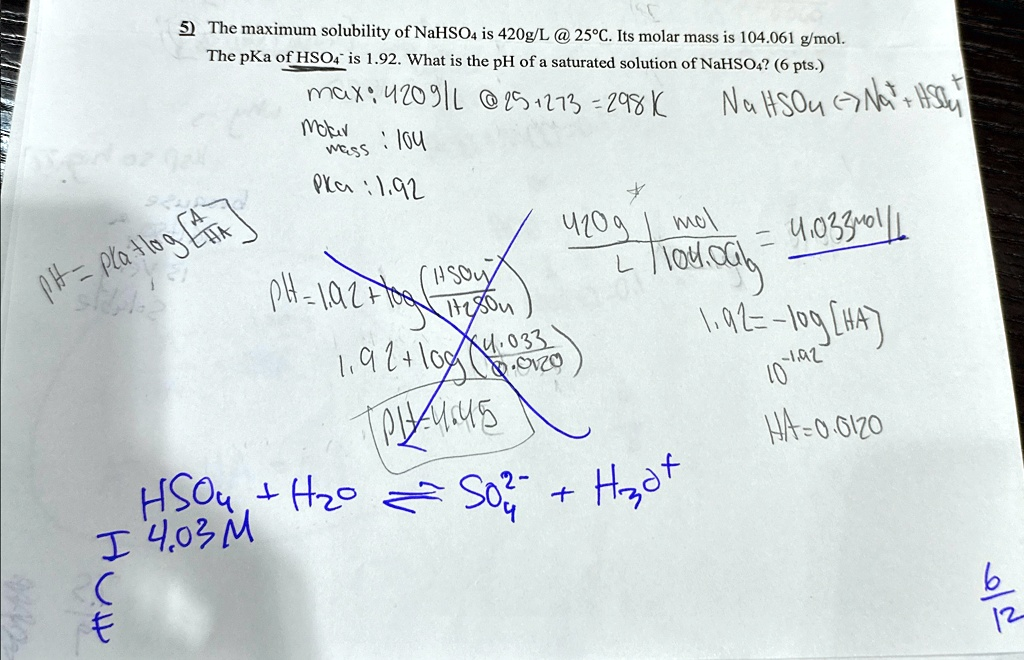 5) The maximum solubility of NaHSO₄ is 420g/L @ 25°C. Its molar mass is 104.061 g/mol.
The pKa of HSO₄⁻ is 1.92. What is the pH of a saturated solution of NaHSO₄? (6 pts.)
max: 420g/L @ 25+273 = 298K
NaHSO₄ <-> Na⁺ + HSO₄⁺
Molar mass : 104
pKa : 1.92
pH = pKa + log [A/HA]
420g/L | mol/104.061g = 4.033mol/L
pH = 1.92 + log (HSO₄⁻/H₂SO₄)
1.92 + log (4.033/0.0120)
pH = 4.45
1.92 = -log [HA]
10^-1.92
HA = 0.0120
HSO₄ + H₂O ⇌ SO₄²⁻ + H₃O⁺
I 4.03 M
C
E
6/12